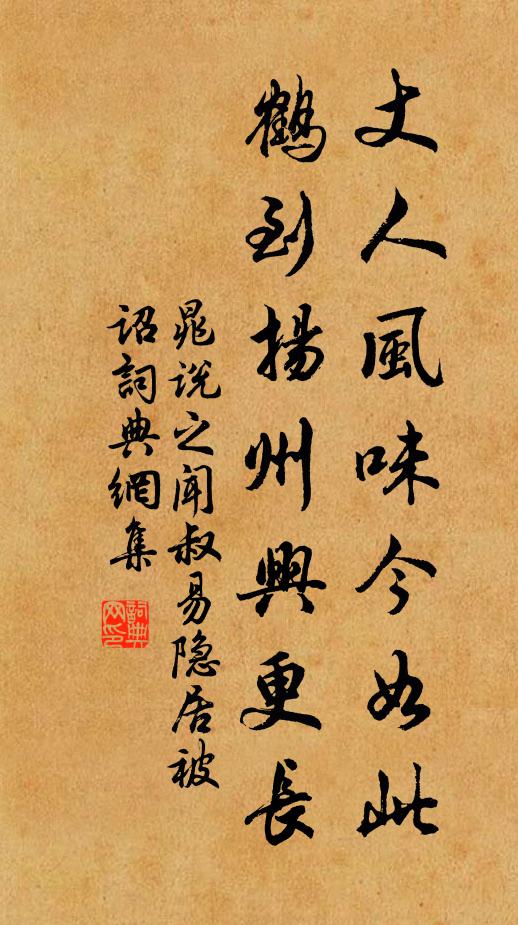 丈人風味今如此
鶴到揚州興更長
晁说之闻叔易隐居被
詔詞典網集
詞典
网印